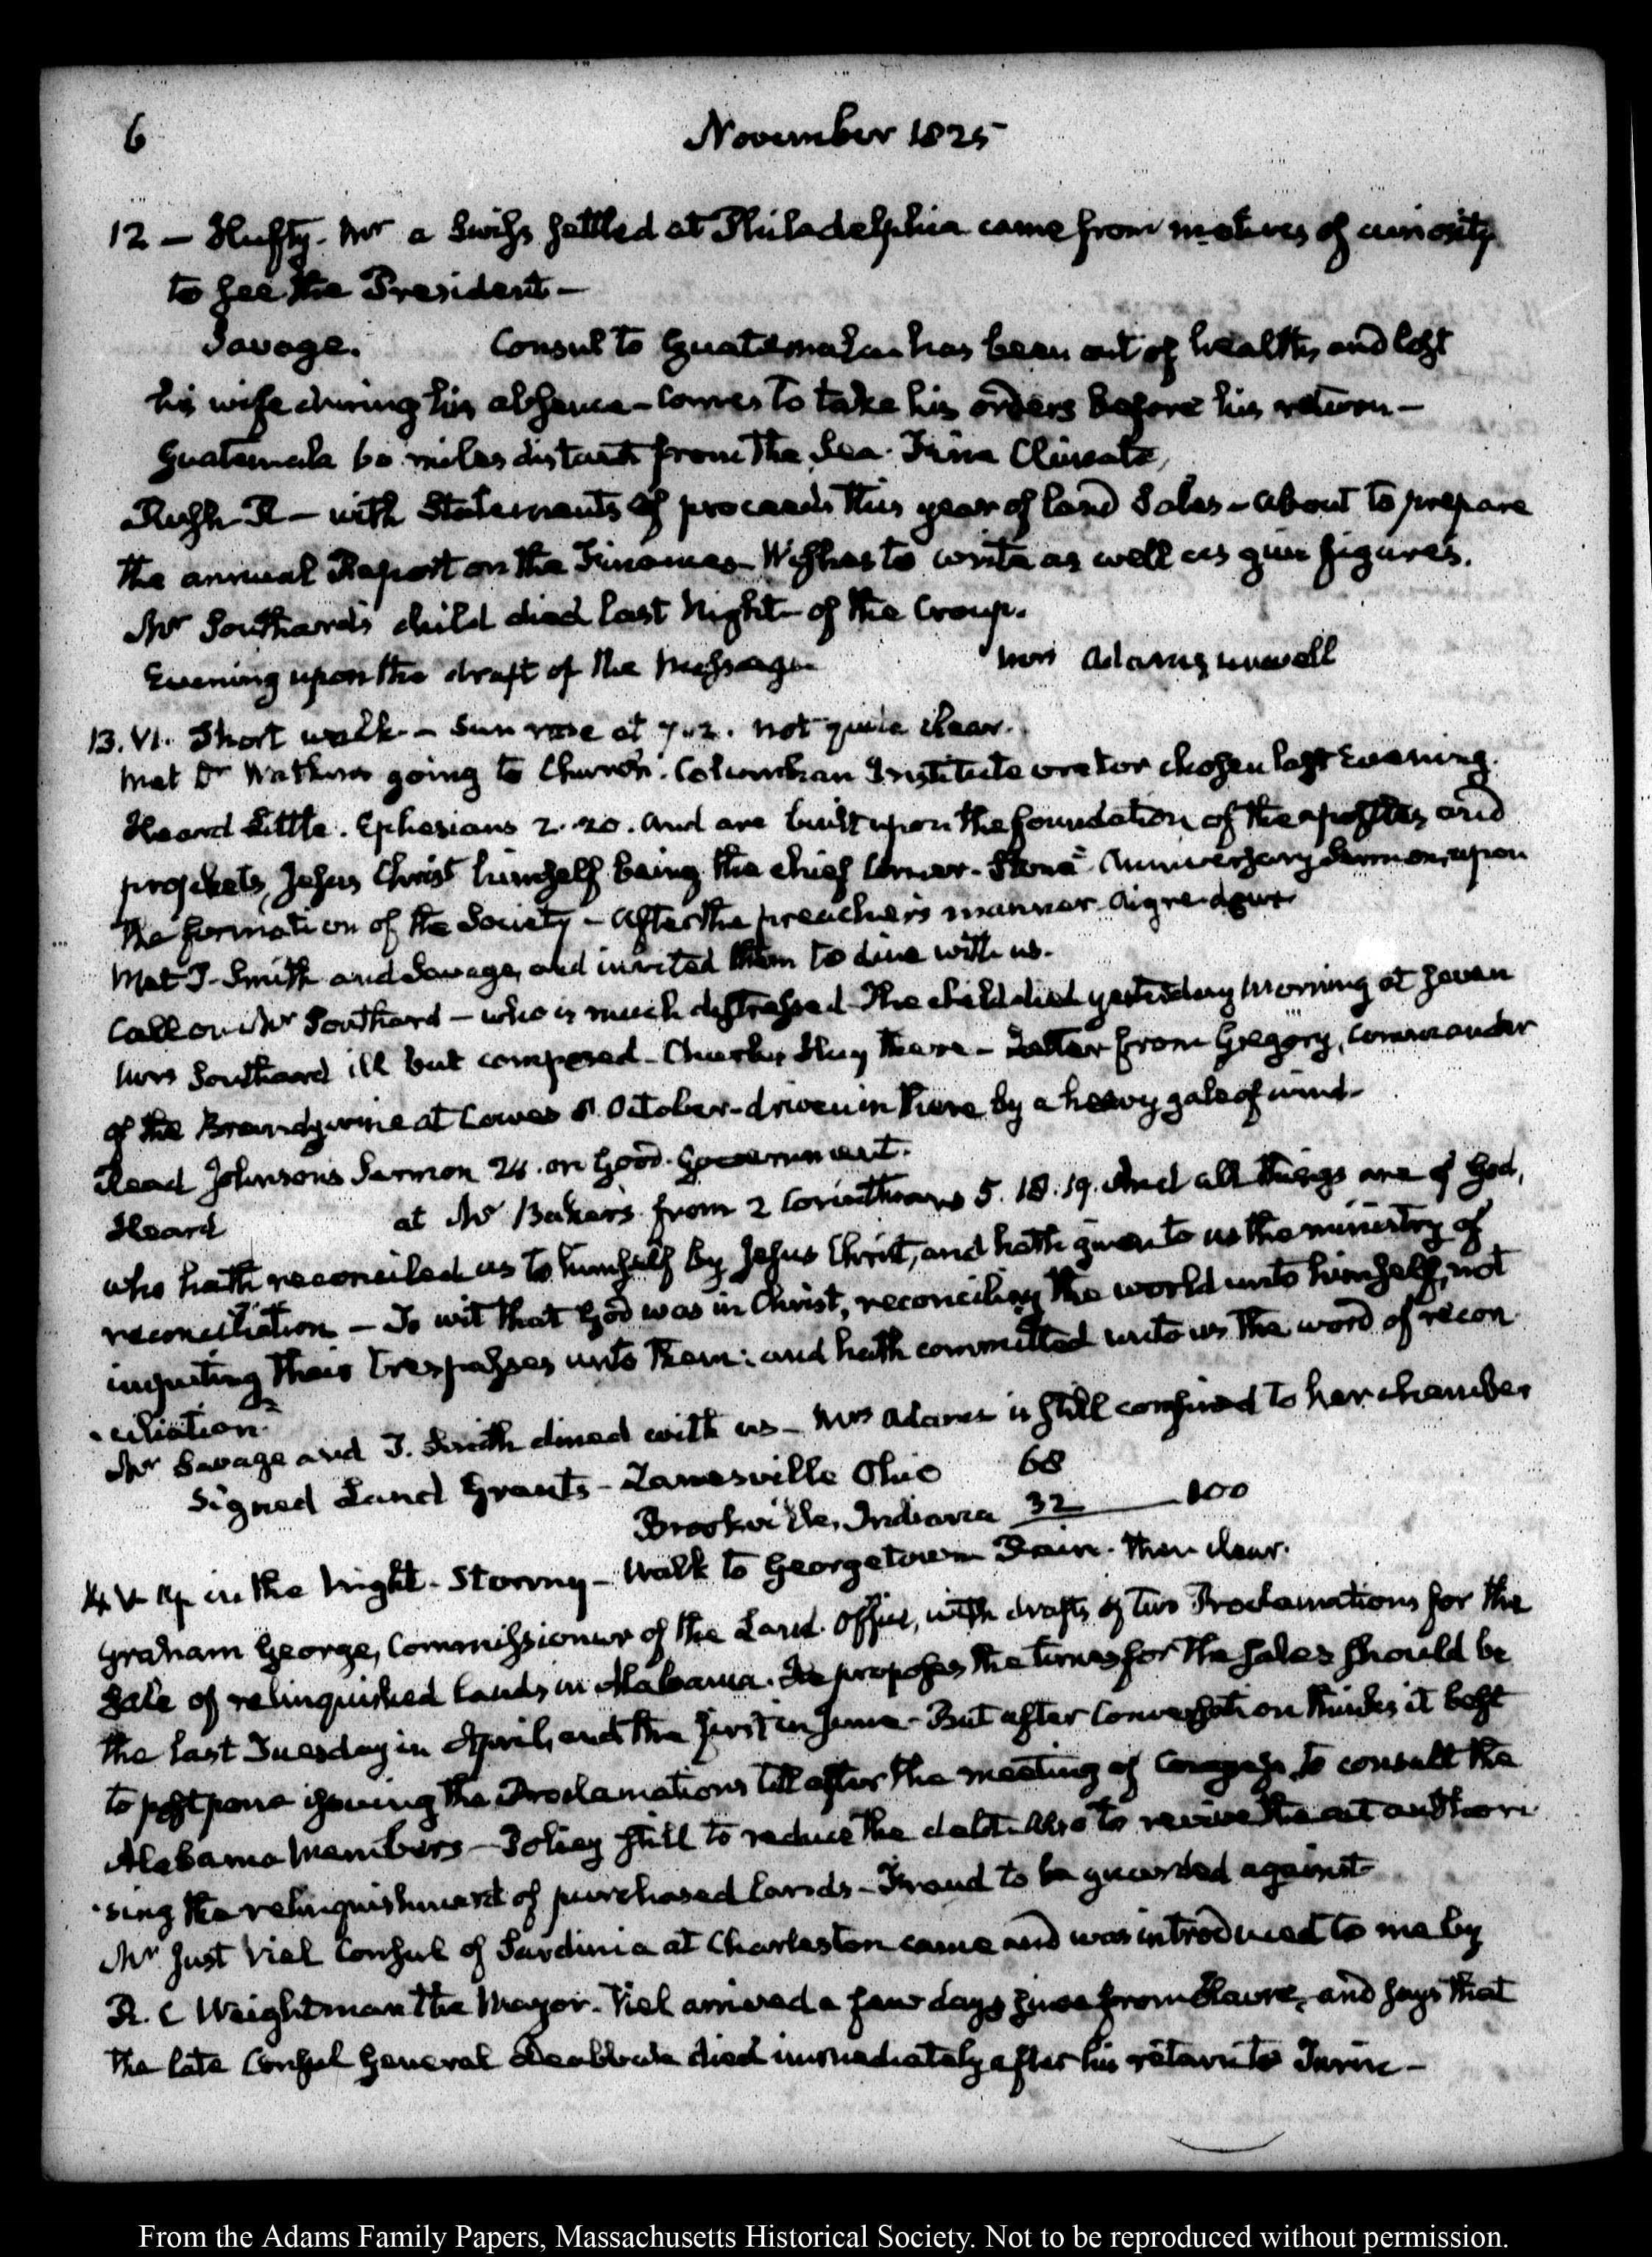 6
November 1825
12 — Hufty. Mr a Swiss settled at Philadelphia came from motives of curiosity
to see the President —
Savage. Consul to Guatemala has been out of health, and lost
his wife during his absence — Comes to take his orders before his return —
Guatemala 60 miles distant from the Sea. Fine Climate,
Rush R — with Statements of proceeds this year of land Sales — about to prepare
the annual Report on the Finances — Wishes to write as well as give figures.
Mr Southard's child died last Night — of the Croup.
Evening upon the draft of the Message Mrs Adams unwell
13. VI. Short walk — Sun rose at 7..2. not quite clear.
Met Dr Watkins going to Church. Columbian Institute orator chosen last Evening.
Heard Little. Ephesians 2. 20. And are built upon the foundation of the apostles and
prophets, Jesus Christ himself being the chief Corner-Stone" Anniversary Sermon, upon
the formation of the Society — After the preacher's manner aigre-doux
Met J. Smith and Savage, and invited them to dine with us.
Call on Mr Southard — who is much distressed — The child died yesterday Morning at seven
Mrs Southard ill but composed — Charles Hay there — Letter from Gregory, Commander
of the Brandywine at Cowes October — driven in there by a heavy gale of wind —
Read Johnson's Sermon 24. on Good Government.
Heard at Mr Baker's from 2 Corinthians 5. 18. 19. And all things are of God,
who hath reconciled us to himself by Jesus Christ, and hath given to us the ministry of
reconciliation — To wit that God was in Christ, reconciling the world unto himself, not
imputing their trespasses unto them: and hath committed unto us the word of recon
-ciliation."
Mr Savage and J. Smith dined with us — Mrs Adams is still confined to her chamber
Signed Land Grants — Zanesville Ohio 68
Brookville, Indiana 32 — 100
14. V. Up in the Night. Stormy — Walk to Georgetown Rain. then clear.
Graham George, Commissioner of the Land Office, with drafts of two Proclamations for the
Sale of relinquished lands in Alabama. He proposes the times for the Sales should be
the last Tuesday in April, and the first in June — But after Conversation thinks it best
to postpone issuing the Proclamations till after the meeting of Congress, to consult the
Alabama Members — Policy still to reduce the debt. Also to revive the act authori
-sing the relinquishment of purchased lands — Fraud to be guarded against
Mr Just Viel Consul of Sardinia at Charleston came and was introduced to me by
R. C Weightman the Mayor. Viel arrived a few days since from Havre, and says that
the late Consul General died immediately after his return to Turin —
From the Adams Family Papers, Massachusetts Historical Society. Not to be reproduced without permission.